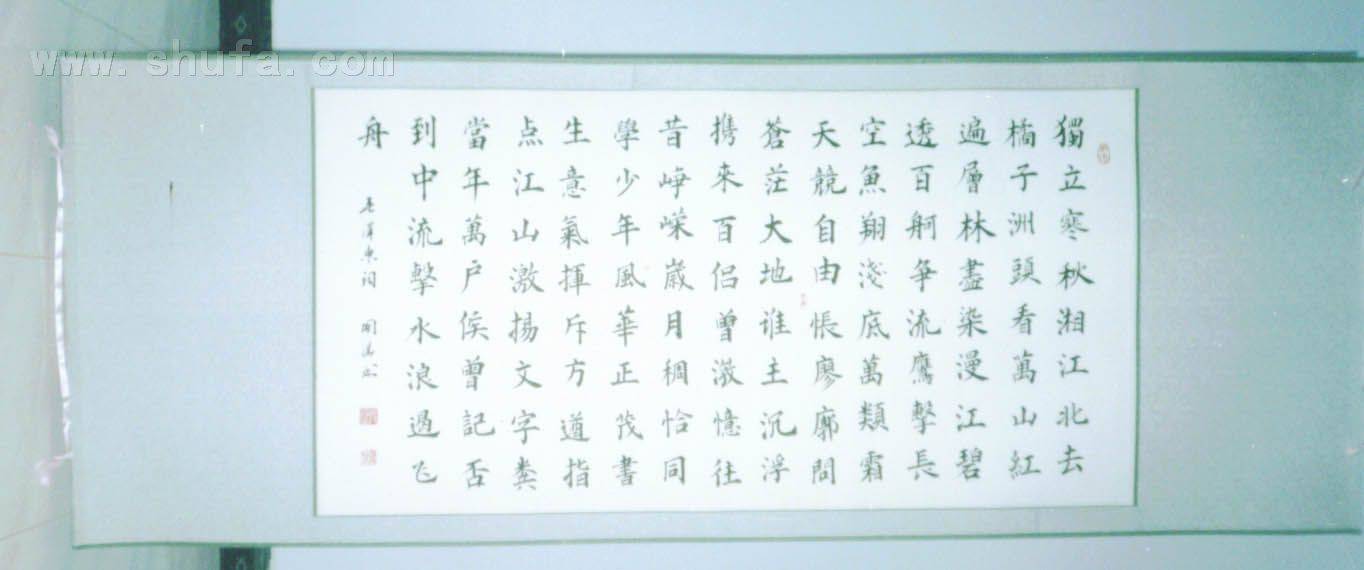 www.shufa.com
獨立寒秋湘江北去
橘子洲頭看萬山紅
遍層林盡染漫江碧
透百舸争流鷹擊長
空魚翔淺底萬類霜
天競自由悵廖廓問
蒼茫大地谁主沉浮
携來百侣曾游憶往
昔崢嶸歲月稠恰同
學少年風華正茂書
生意氣揮斥方遒指
点江山激揚文字糞
當年萬户侯曾記否
到中流擊水浪遏飞
舟
毛澤東詞